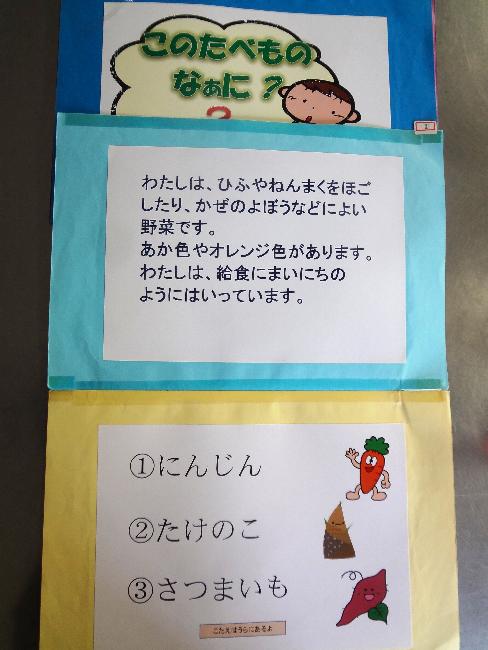 このたべもの
なぁに？
わたしは、ひふやねんまくをほご
したり、かぜのよぼうなどによい
野菜です。
あか色やオレンジ色があります。
わたしは、給食にまいにちの
ようにはいっています。
①にんじん
②たけのこ
③さつまいも
こたえはうらにあるよ